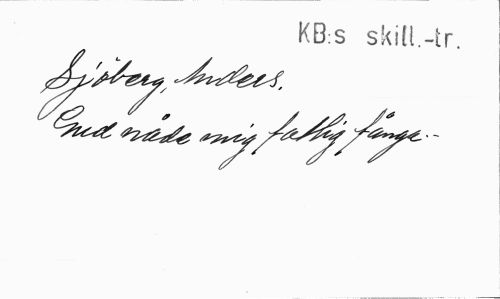 KB:s skill.-tr.
Sjöberg, Anders.
Gud nåde mig fattig fånge.-